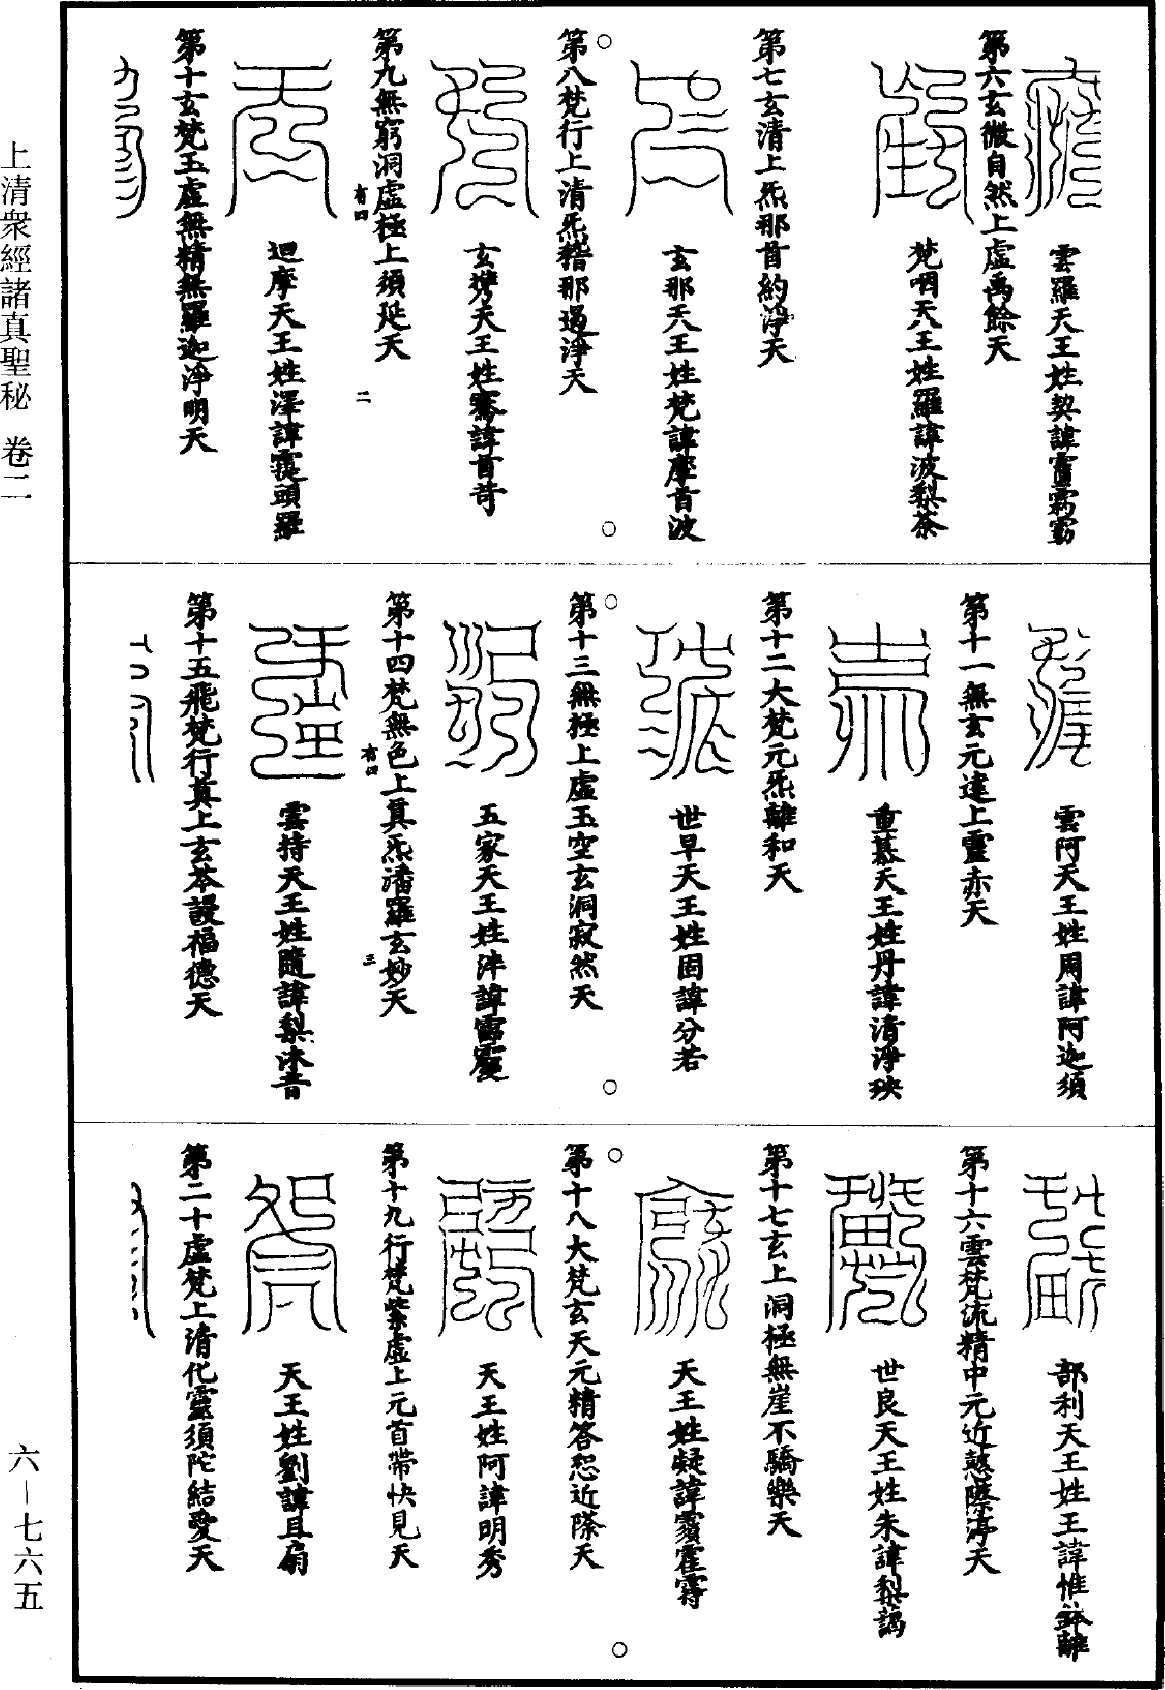 雲羅天王姓契諱
第六玄微自然上虛禹餘天
梵咽天王姓羅諱波梨荼
第七玄清上炁那首約淨天
玄那天王姓梵諱摩首波
第八梵行上清炁稽那邊淨天
玄天王姓騫諱首苛
第九無窮洞虛極上須延天
有四
二
迴摩天王姓澤諱霆頭羅
第十玄梵玉虛無精無羅迦淨明天
雲阿天王姓周諱阿迦須
第十一無玄元達上靈赤天
重基天王姓丹諱清淨殃
第十二大梵元炁離和天
世早天王姓固諱分若
第十三無極上虛玉空玄洞寂然天
五家天王姓泮諱
第十四梵無色上真炁潘羅玄妙天
有四
三
雲持天王姓隨諱梨沐音
第十五飛梵行真上玄苓謾福德天
部利天王姓王諱惟離
第十六雲梵流精中元近際淳天
世良天王姓朱諱梨謁
第十七玄上洞極無崖不驕樂天
天王姓凝諱霍
第十八大梵玄天元精答恕近際天
天王姓阿諱明秀
第十九行梵紫虛上元首帶快見天
天王姓劉諱且扇
第二十虛梵上清化靈須陀結愛天
上清衆經諸真聖秘 卷二
六—七六五